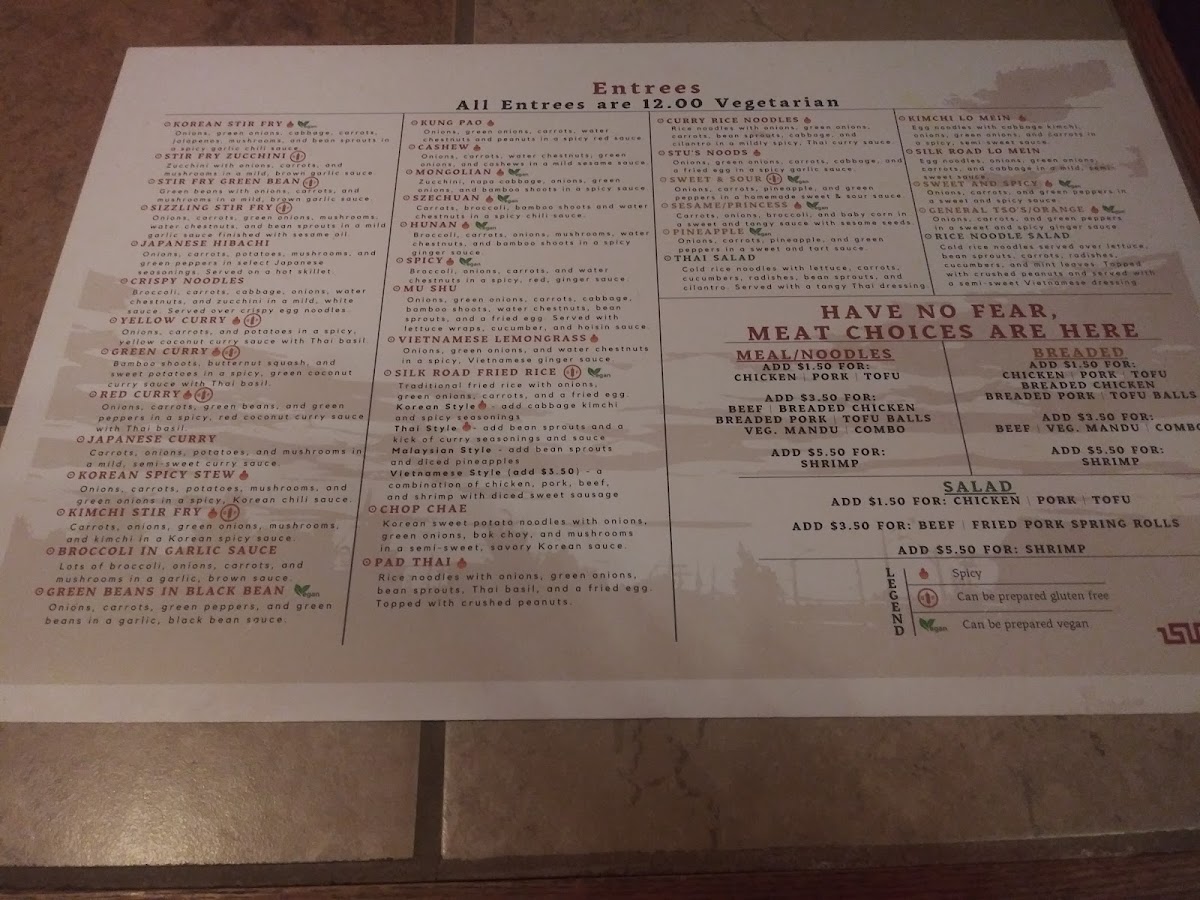 Entrees
All Entrees are 12.00 Vegetarian
KOREAN STIR FRY vegan
Onions, green onions, cabbage, carrots,
jalapenos, mushrooms, and bean sprouts in
a spicy garlic chili sauce
STIR FRY ZUCCHINI
Zucchini with onions, carrots, and
mushrooms in a mild, brown garlic sauce
STIR FRY GREEN BEAN
Green beans with onions, carrots, and
mushrooms in a mild, brown garlic sauce.
SIZZLING STIR FRY
Onions, carrots, green onions, mushrooms,
water chestnuts, and bean sprouts in a mild
garlic sauce finished with sesame oil.
JAPANESE HIBACHI
Onions, carrots, potatoes, mushrooms, and
green peppers in select Japanese
seasonings. Served on a hot skillet.
CRISPY NOODLES
Broccoli, carrots, cabbage, onions, water
chestnuts, and zucchini in a mild, white
sauce. Served over crispy egg noodles.
YELLOW CURRY
Onions, carrots, and potatoes in a spicy,
yellow coconut curry sauce with Thai basil.
GREEN CURRY
Bamboo shoots, butternut squash, and
sweet potatoes in a spicy, green coconut
curry sauce with Thai basil.
RED CURRY
Onions, carrots, green beans, and green
peppers in a spicy, red coconut curry sauce
with Thai basil.
JAPANESE CURRY
Carrots, onions, potatoes, and mushrooms in
a mild, semi-sweet curry sauce.
KOREAN SPICY STEW
Onions, carrots, potatoes, mushrooms, and
green onions in a spicy, Korean chili sauce.
KIMCHI STIR FRY
Carrots, onions, green onions, mushrooms,
and kimchi in a Korean spicy sauce.
BROCCOLI IN GARLIC SAUCE
Lots of broccoli, onions, carrots, and
mushrooms in a garlic, brown sauce.
GREEN BEANS IN BLACK BEAN vegan
Onions, carrots, green peppers, and green
beans in a garlic, black bean sauce.
KUNG PAO
Onions, green onions, carrots, water
chestnuts and peanuts in a spicy red sauce
CASHEW vegan
Onions, carrots, water chestnuts, green
onions, and cashews in a mild sesame sauce.
MONGOLIAN vegan
Zucchini, napa cabbage, onions, green
onions, and bamboo shoots in a spicy sauce
SZECHUAN vegan
Carrots, broccoli, bamboo shoots and water
chestnuts in a spicy chili sauce.
HUNAN vegan
Broccoli, carrots, onions, mushrooms, water
chestnuts, and bamboo shoots in a spicy
ginger sauce.
SPICY vegan
Broccoli, onions, carrots, and water
chestnuts in a spicy, red, ginger sauce.
MU SHU
Onions, green onions, carrots, cabbage,
bamboo shoots, water chestnuts, bean
sprouts, and a fried egg. Served with
lettuce wraps, cucumber, and hoisin sauce.
VIETNAMESE LEMONGRASS
Onions, green onions, and water chestnuts
in a spicy, Vietnamese ginger sauce.
SILK ROAD FRIED RICE vegan
Traditional fried rice with onions,
green onions, carrots, and a fried egg.
Korean Style - add cabbage kimchi
and spicy seasonings
Thai Style - add bean sprouts and a
kick of curry seasonings and sauce
Malaysian Style - add bean sprouts
and diced pineapples
Vietnamese Style (add $3.50) - a
combination of chicken, pork, beef,
and shrimp with diced sweet sausage
CHOP CHAE
Korean sweet potato noodles with onions,
green onions, bok choy, and mushrooms
in a semi-sweet, savory Korean sauce.
PAD THAI
Rice noodles with onions, green onions,
bean sprouts, Thai basil, and a fried egg.
Topped with crushed peanuts.
CURRY RICE NOODLES
Rice noodles with onions, green onions,
carrots, bean sprouts, cabbage, and
cilantro in a mildly spicy, Thai curry sauce.
STU'S NOODS
Onions, green onions, carrots, cabbage, and
a fried egg in a spicy garlic sauce.
SWEET & SOUR vegan
Carrots, pineapple, and green
peppers in a homemade sweet & sour sauce.
SESAME/PRINCESS vegan
Carrots, onions, broccoli, and baby corn in
a sweet and tangy sauce with sesame seeds
PINEAPPLE vegan
Onions, carrots, pineapple, and green
peppers in a sweet and tart sauce.
THAI SALAD
Cold rice noodles with lettuce, carrots,
cucumbers, radishes, bean sprouts, and
cilantro. Served with a tangy Thai dressing.
KIMCHI LO MEIN
Egg noodles with cabbage kimchi,
onions, green onions, and carrots in
a spicy, semi sweet sauce.
SILK ROAD LO MEIN
Egg noodles, onions, green onions,
carrots, and cabbage in a mild, semi-
sweet sauce.
SWEET AND SPICY vegan
Onions, carrots, and green peppers in
a sweet and spicy sauce.
GENERAL TSO'S/ORANGE vegan
Onions, carrots, and green peppers
in a sweet and spicy ginger sauce.
RICE NOODLE SALAD
Cold rice noodles served over lettuce,
bean sprouts, carrots, radishes,
cucumbers, and mint leaves. Topped
with crushed peanuts and served with
a semi-sweet Vietnamese dressing
HAVE NO FEAR,
MEAT CHOICES ARE HERE
MEAL/NOODLES
ADD $1.50 FOR:
CHICKEN | PORK | TOFU
ADD $3.50 FOR:
BEEF | BREADED CHICKEN
BREADED PORK | TOFU BALLS
VEG. MANDU | COMBO
ADD $5.50 FOR:
SHRIMP
BREADED
ADD $1.50 FOR:
CHICKEN | PORK | TOFU
BREADED CHICKEN
BREADED PORK | TOFU BALLS
ADD $3.50 FOR:
BEEF | VEG. MANDU | COMBO
ADD $5.50 FOR:
SHRIMP
SALAD
ADD $1.50 FOR: CHICKEN | PORK | TOFU
ADD $3.50 FOR: BEEF | FRIED PORK SPRING ROLLS
ADD $5.50 FOR: SHRIMP
LEGEND
Spicy
Can be prepared gluten free
vegan Can be prepared vegan